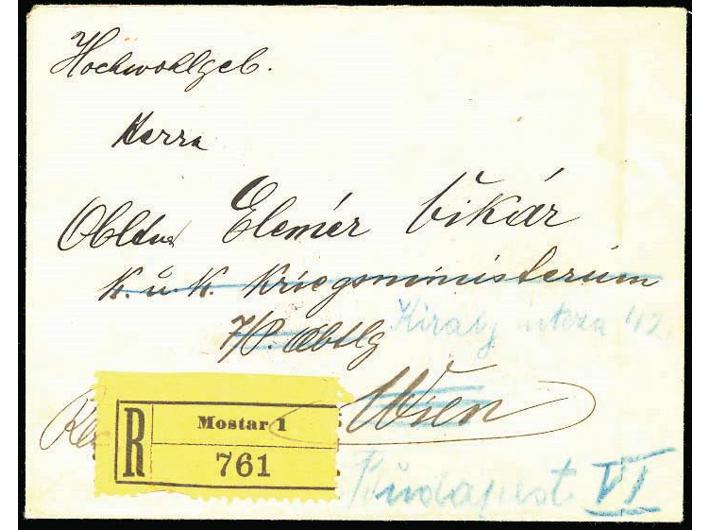 Hochwohlgeb.
Herrn
Elemér Vikár
k. u. k. Kriegsministerium
7/P. Abtlg
Király utcza 42
Wien
R Mostar 1
761
Budapest VI